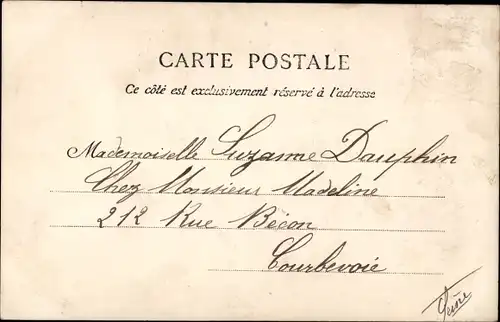 CARTE POSTALE
Ce côté est exclusivement réservé à l'adresse
Mademoiselle Suzanne Dauphin
Chez Monsieur Madeline
212 Rue Bécon
Courbevoie
Seine